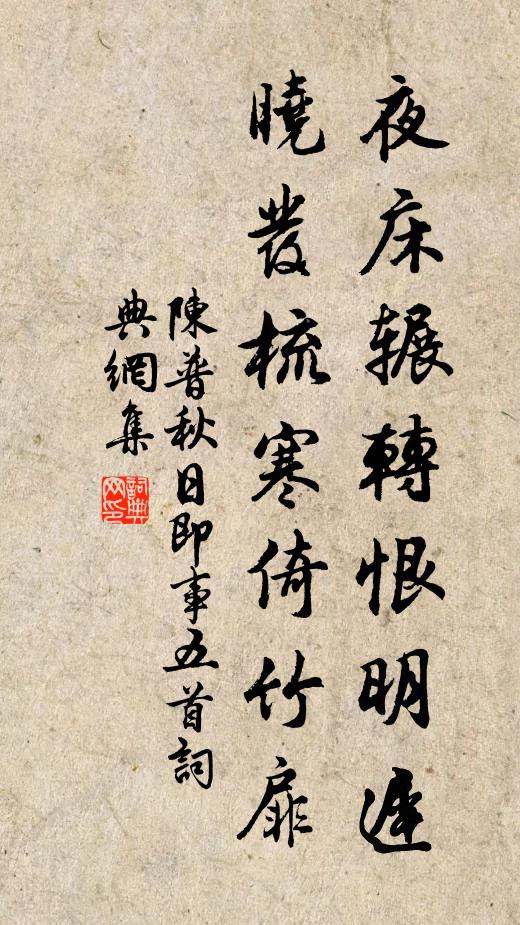 夜床辗轉恨明遲
曉發梳寒倚竹扉
陳普秋日即事五首詞
典網集
詞典网印